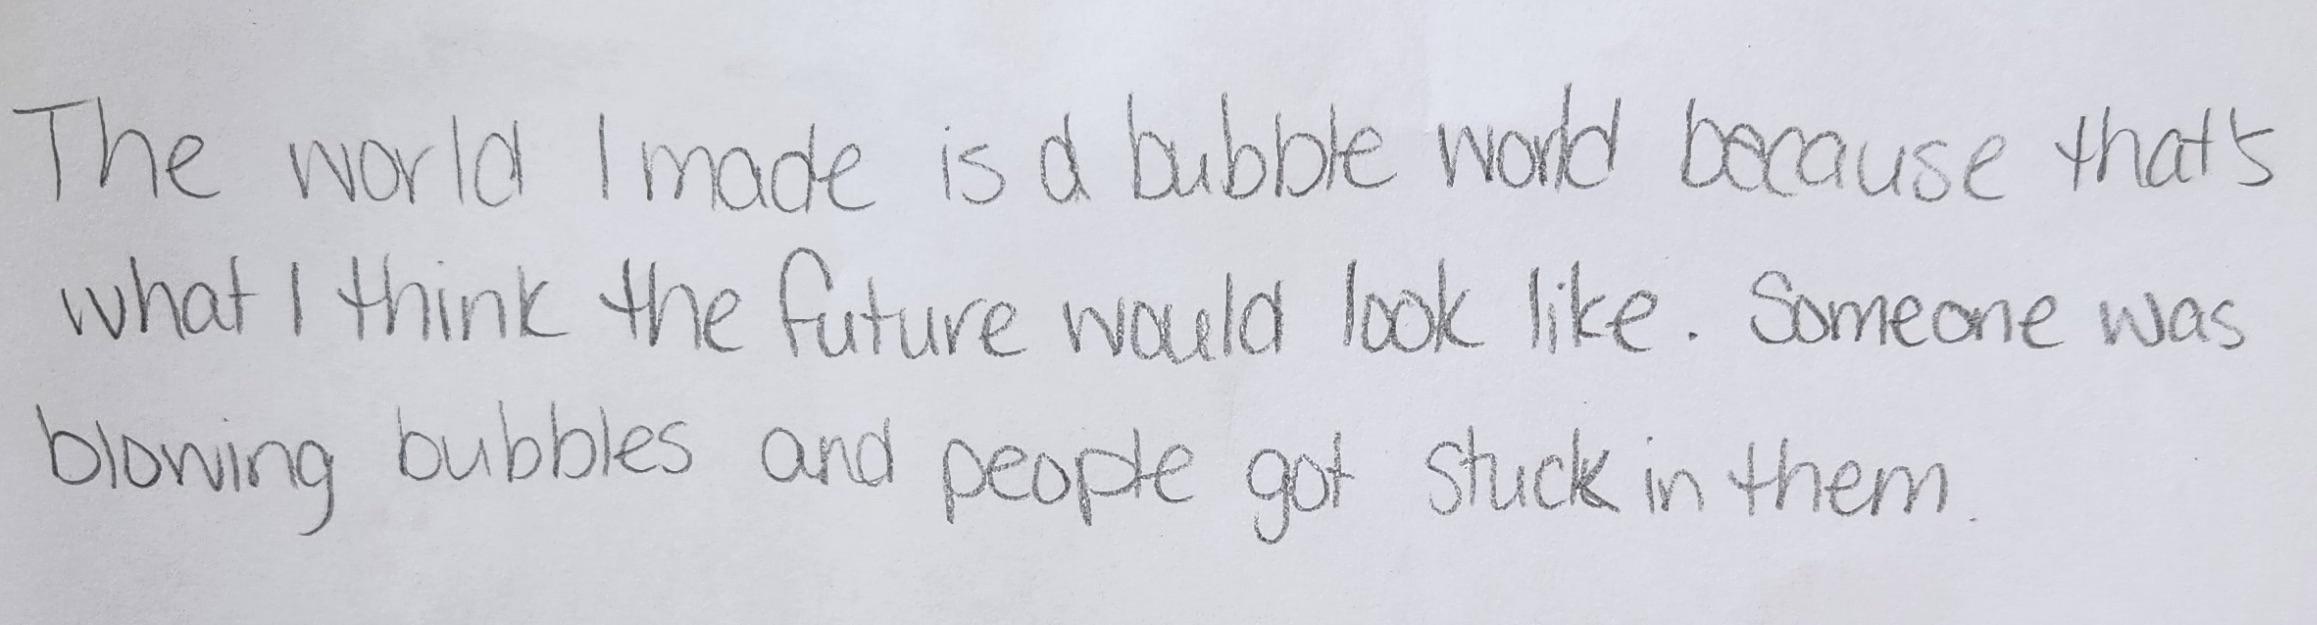 The world I made is a bubble world because that's
what I think the future would look like. Someone was
blowing bubbles and people got stuck in them.